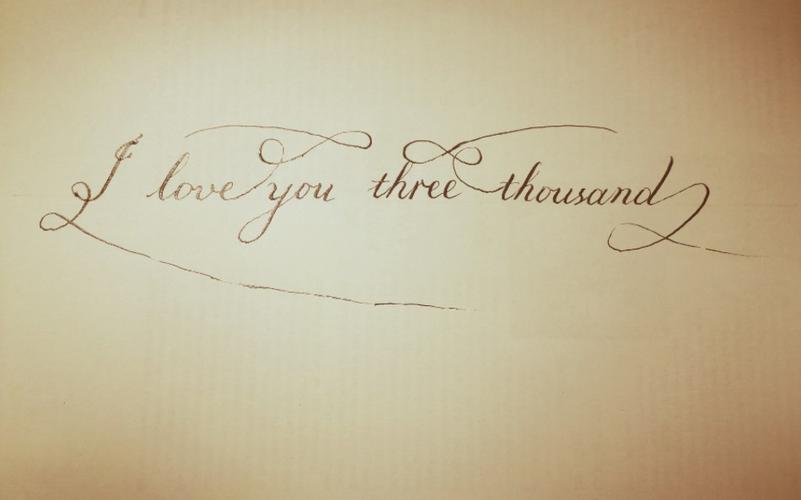 I love you three thousand